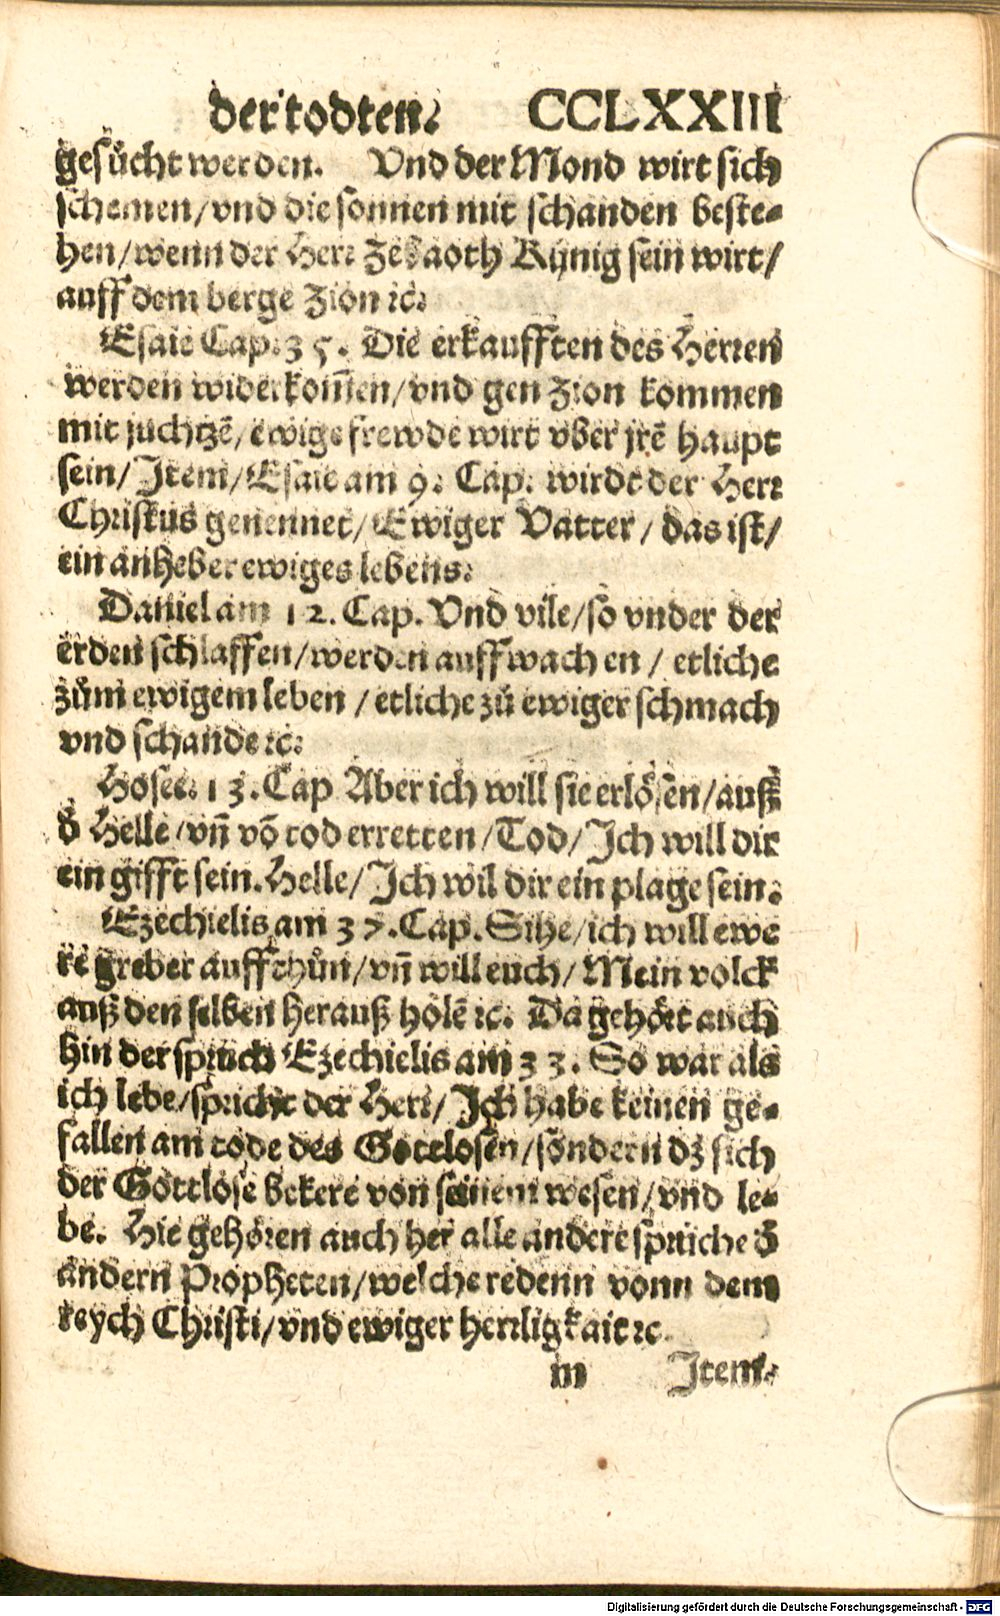 der todten. CCLXXIII
gesücht werden. Vnd der Mond wirt sich
schemen/vnd die sonnen mit schanden beste-
hen/wenn der Herr Zebaoth Künig sein wirt/
auff dem berge Zion ꝛc.
Esaie Cap. 35. Die erkaufften des Herren
werden widerkom̄en/vnd gen Zion kommen
mit juchtzē/ewige frewde wirt vber jrē haupt
sein/Item/Esaie am 9. Cap. wirdt der Herr
Christus genennet/Ewiger Vatter/das ist/
ein anheber ewiges lebens.
Daniel am 12. Cap. Vnd vile/so vnder der
erden schlaffen/werden auffwachen/etliche
zům ewigem leben/etliche zů ewiger schmach
vnd schande ꝛc.
Hosee. 13. Cap Aber ich will sie erlösen/auß
d̄ Helle/vn̄ vō tod erretten/Tod/Ich will dir
ein gifft sein. Helle/Ich wil dir ein plage sein.
Ezechielis am 37. Cap. Sihe/ich will ewe
re greber auffthůn/vn̄ will euch/Mein volck
auß den selben herauß holē ꝛc. Da gehört auch
hin der spruch Ezechielis am 33. So war als
ich lebe/spricht der Herr/Ich habe keinen ge-
fallen am tode des Gottlosen/sondern dz sich
der Gottlose bekere von seinem wesen/vnd le-
be. Hie gehören auch her alle andere sprüche d̄
andern Propheten/welche redenn vonn dem
reych Christi/vnd ewiger herrligkait ꝛc
m Item.
Digitalisierung gefördert durch die Deutsche Forschungsgemeinschaft - DFG